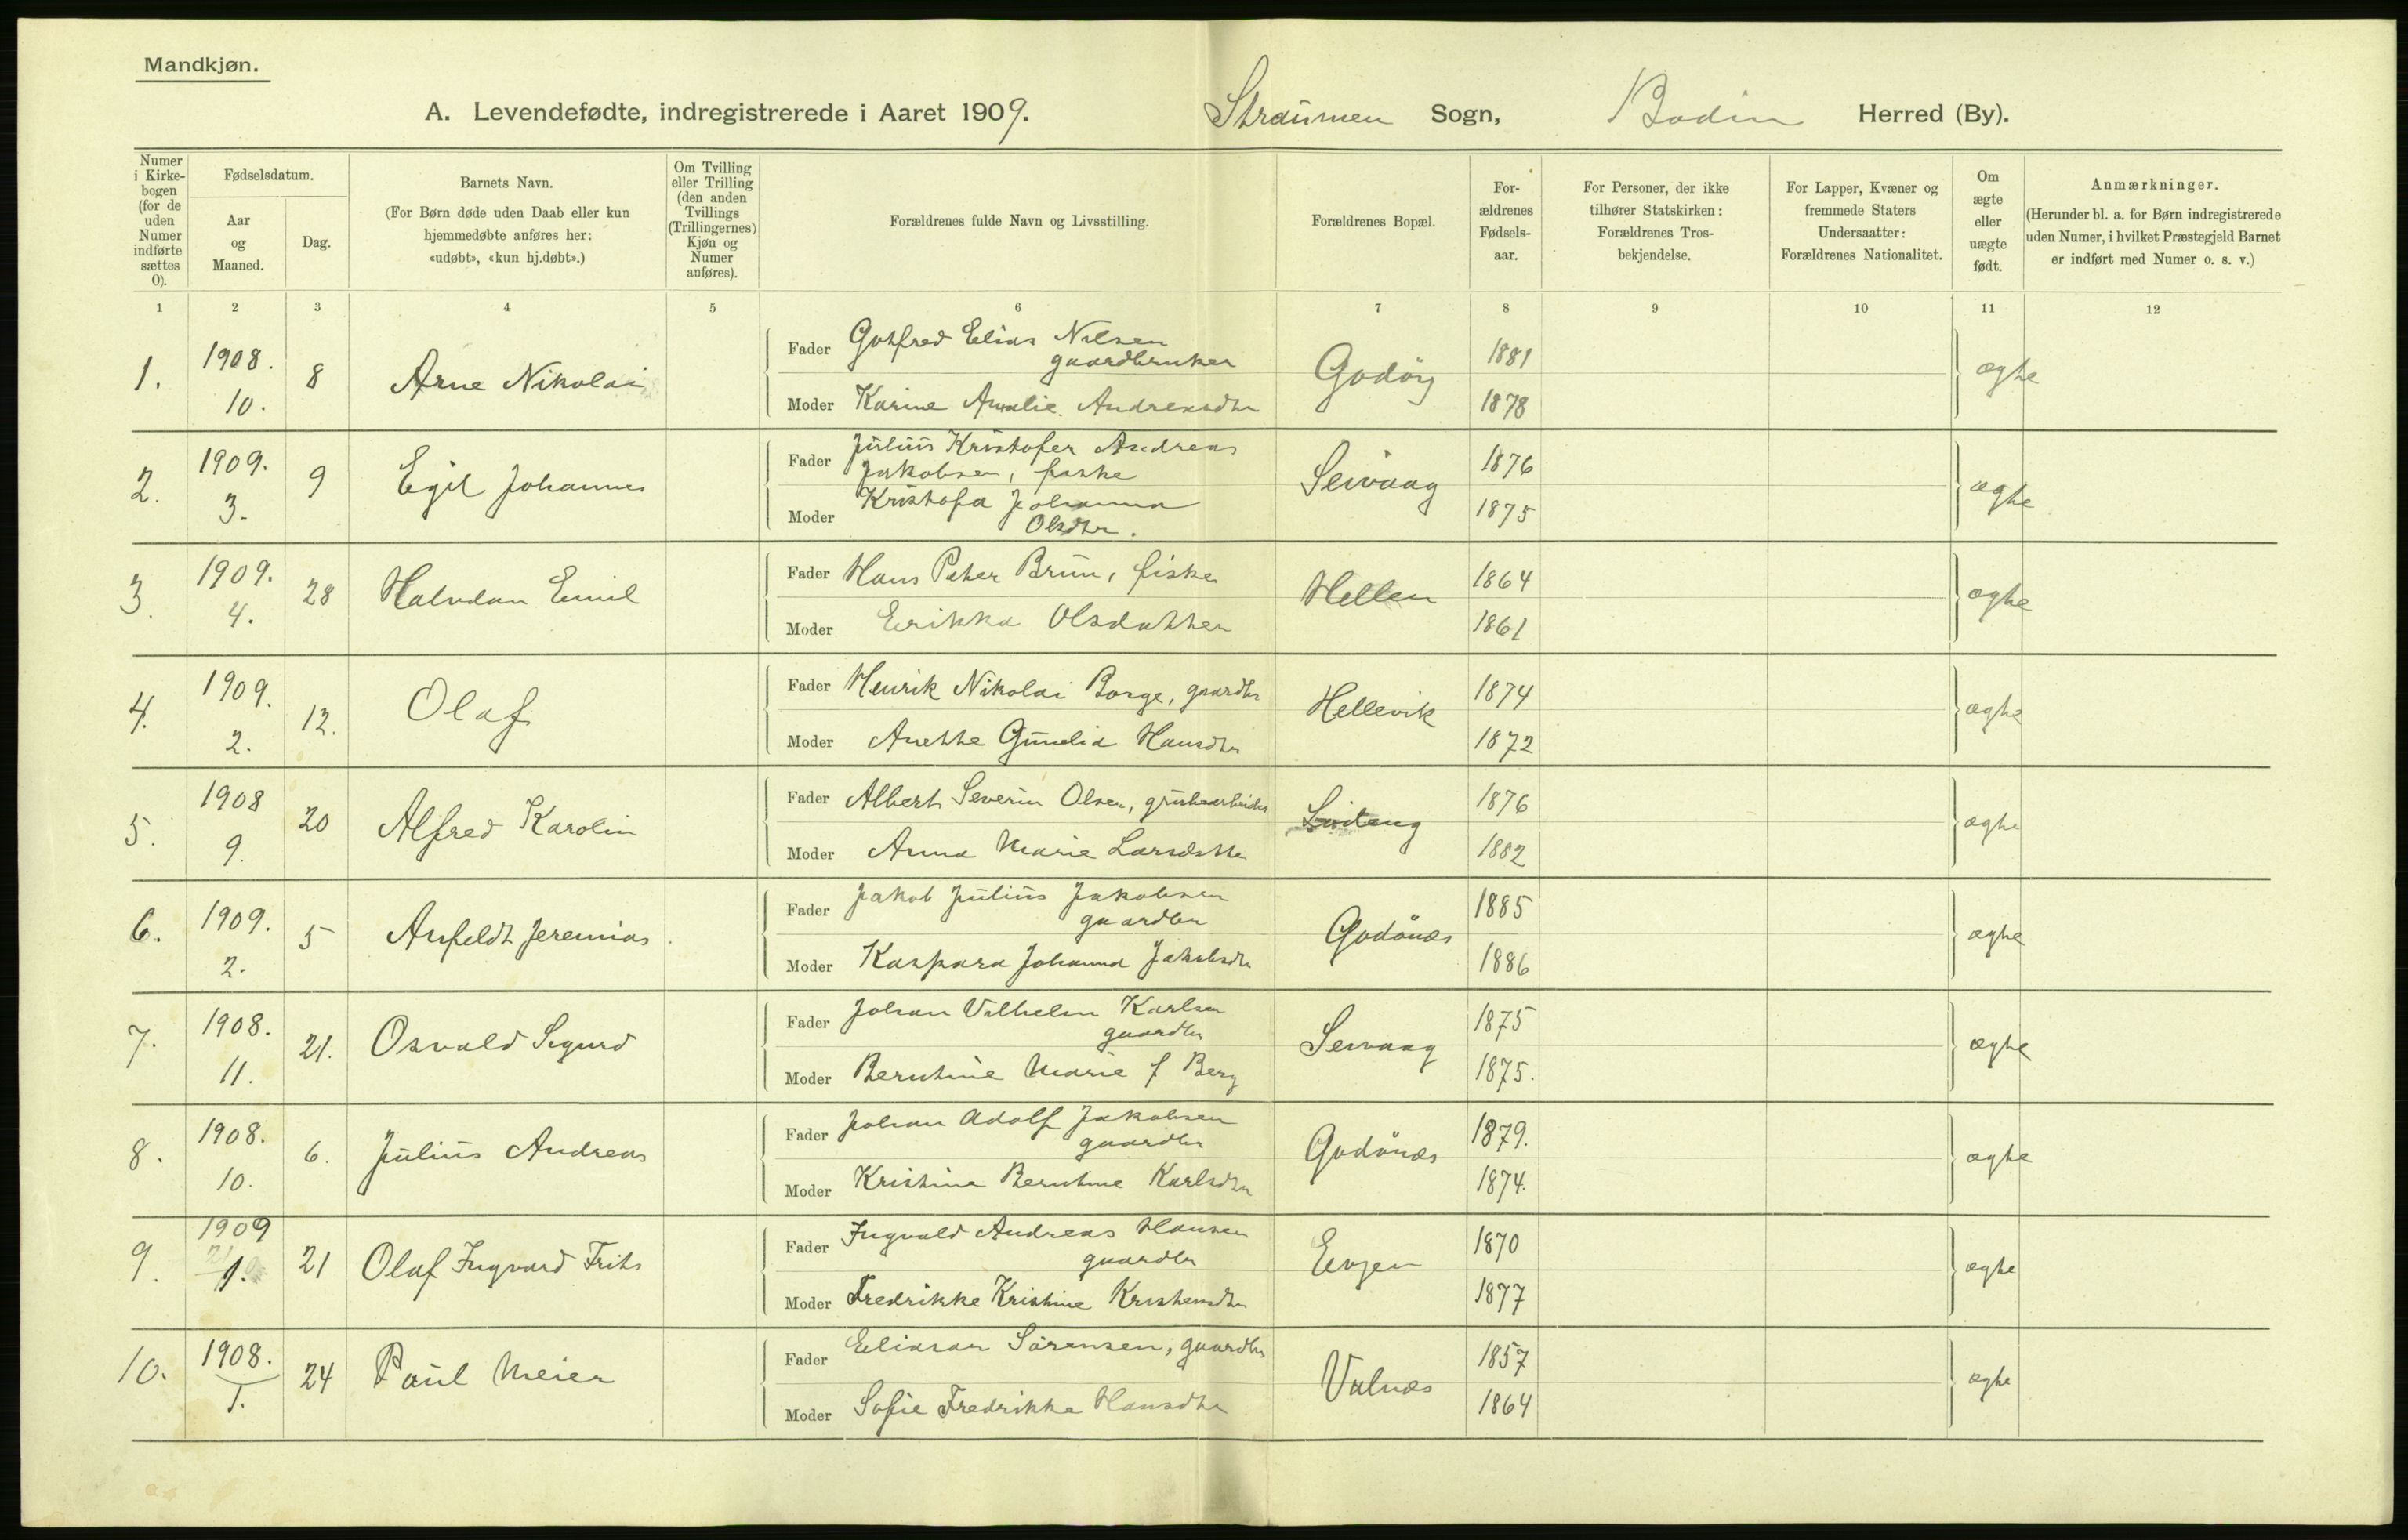 Mandkjøn.
A. Levendefødte, indregistrerede i Aaret 1909. Straumen Sogn, Bodin Herred (By).
Numer i Kirke-bogen (for de uden Numer indførte sættes 0).
Fødselsdatum.
Aar og Maaned.
Dag.
Barnets Navn.
(For Børn døde uden Daab eller kun
hjemmedøbte anføres her:
«udøbt», «kun hj.døbt».)
Om Tvilling
eller Trilling
(den anden
Tvillings
(Trillingernes)
Kjøn og
Numer
anføres).
Forældrenes fulde Navn og Livsstilling.
Forældrenes Bopæl.
For-
ældrenes
Fødsels-
aar.
For Personer, der ikke
tilhører Statskirken:
Forældrenes Tros-
bekjendelse.
For Lapper, Kvæner og
fremmede Staters
Undersaatter:
Forældrenes Nationalitet.
Om
ægte
eller
uægte
født.
Anmærkninger.
(Herunder bl. a. for Børn indregistrerede
uden Numer, i hvilket Præstegjeld Barnet
er indført med Numer o. s. v.)
1 2 3 4 5 6 7 8 9 10 11 12
1. 1908. 10. 8 Arne Nikolai
Fader Gotfred Elias Nilsen
gaardbruker
Godöy 1881 ægte
Moder Karine Amalie Andreasdtr 1878
2. 1909. 3. 9 Egil Johannes
Fader Julius Kristofer Andreas
Jakobsen, fiske
Seivaag 1876 ægte
Moder Kristofa Johanna
Olsdtr. 1875
3. 1909. 4. 28 Halvdan Emil
Fader Hans Peter Brun, fisker Hellen 1864 ægte
Moder Erikka Olsdatter 1861
4. 1909. 2. 12. Olaf
Fader Henrik Nikolai Borge, gaardbr Hellevik 1874 ægte
Moder Anette Gunelia Hansdtr 1872
5. 1908 9. 20 Alfred Karolin
Fader Albert Severin Olsen, grubearbeider 1876 ægte
Moder Anna Marie Larsdatter 1882
6. 1909. 2. 5 Anfeldt Jeremias
Fader Jakob Julius Jakobsen
gaardbr
Godönæs 1885 ægte
Moder Kaspara Johanna Jakobsdtr 1886
7. 1908. 11. 21. Osvald Sigurd
Fader Johan Vilhelm Karlsen
gaardbr
Seivaag 1875 ægte
Moder Berntine Marie f Berg 1875.
8. 1908. 10. 6. Julius Andreas
Fader Johan Adolf Jakobsen
gaardbr
Godönæs 1879. ægte
Moder Kristine Berntine Karlsdtr 1874.
9. 1909 1. 21 Olaf Ingvard Frits
Fader Ingvald Andreas Hansen
gaardbr
Evjen 1870 ægte
Moder Fredrikke Kristine Kristensdtr 1877
10. 1908. 1. 24 Paul Meier
Fader Eliasar Sörensen, gaardbr Valnæs 1857 ægte
Moder Sofie Fredrikke Hansdtr 1864